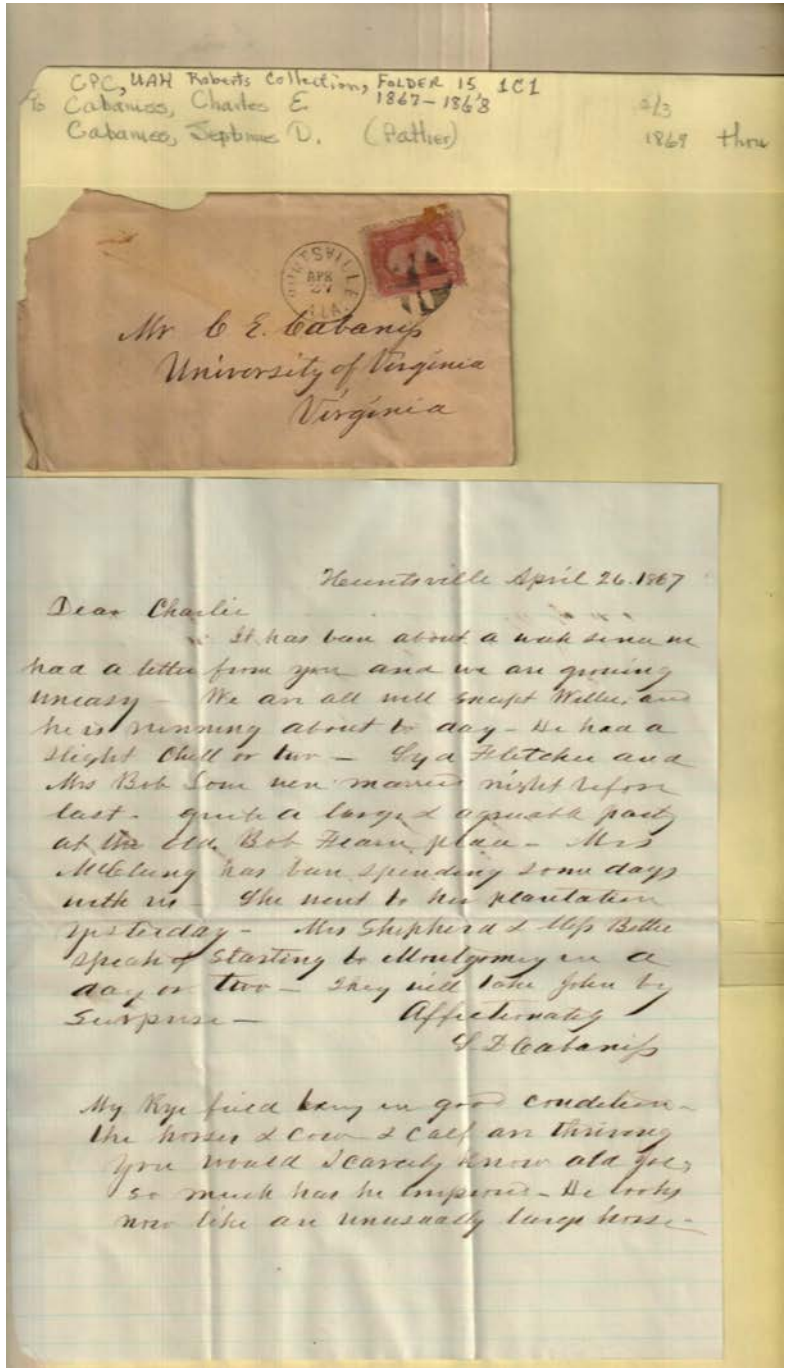 CPC, UAH Roberts Collection, FOLDER 15 1C1
To Cabaniss, Charles E. 1867-1868 2/3
Cabaniss, Septimus D. (Father) 1869 thru
HUNTSVILLE
APR
27
ALA.
Mr C E. Cabaniss
University of Virginia
Virginia
Huntsville April 26. 1867
Dear Charlie
It has been about a week since we
had a letter from you and we are growing
uneasy – We are all well except Willie, and
he is running about to day – He had a
slight chill or two – Syd Fletcher and
Mrs Bob were married night before
last – quite a large & agreeable party
at the old Bob Fearn place – Mrs
McClung has been spending some days
with us – She went to her plantation
yesterday – Mrs Shepherd & Miss Bettie
speak of starting to Montgomery in a
day or two – They will take John by
surprise – Affectionately
S D Cabaniss
My Rye field in good condition –
the horses & cow & calf are thriving
You would scarcely know old
so much has he improved – He looks
now like an unusually large horse –